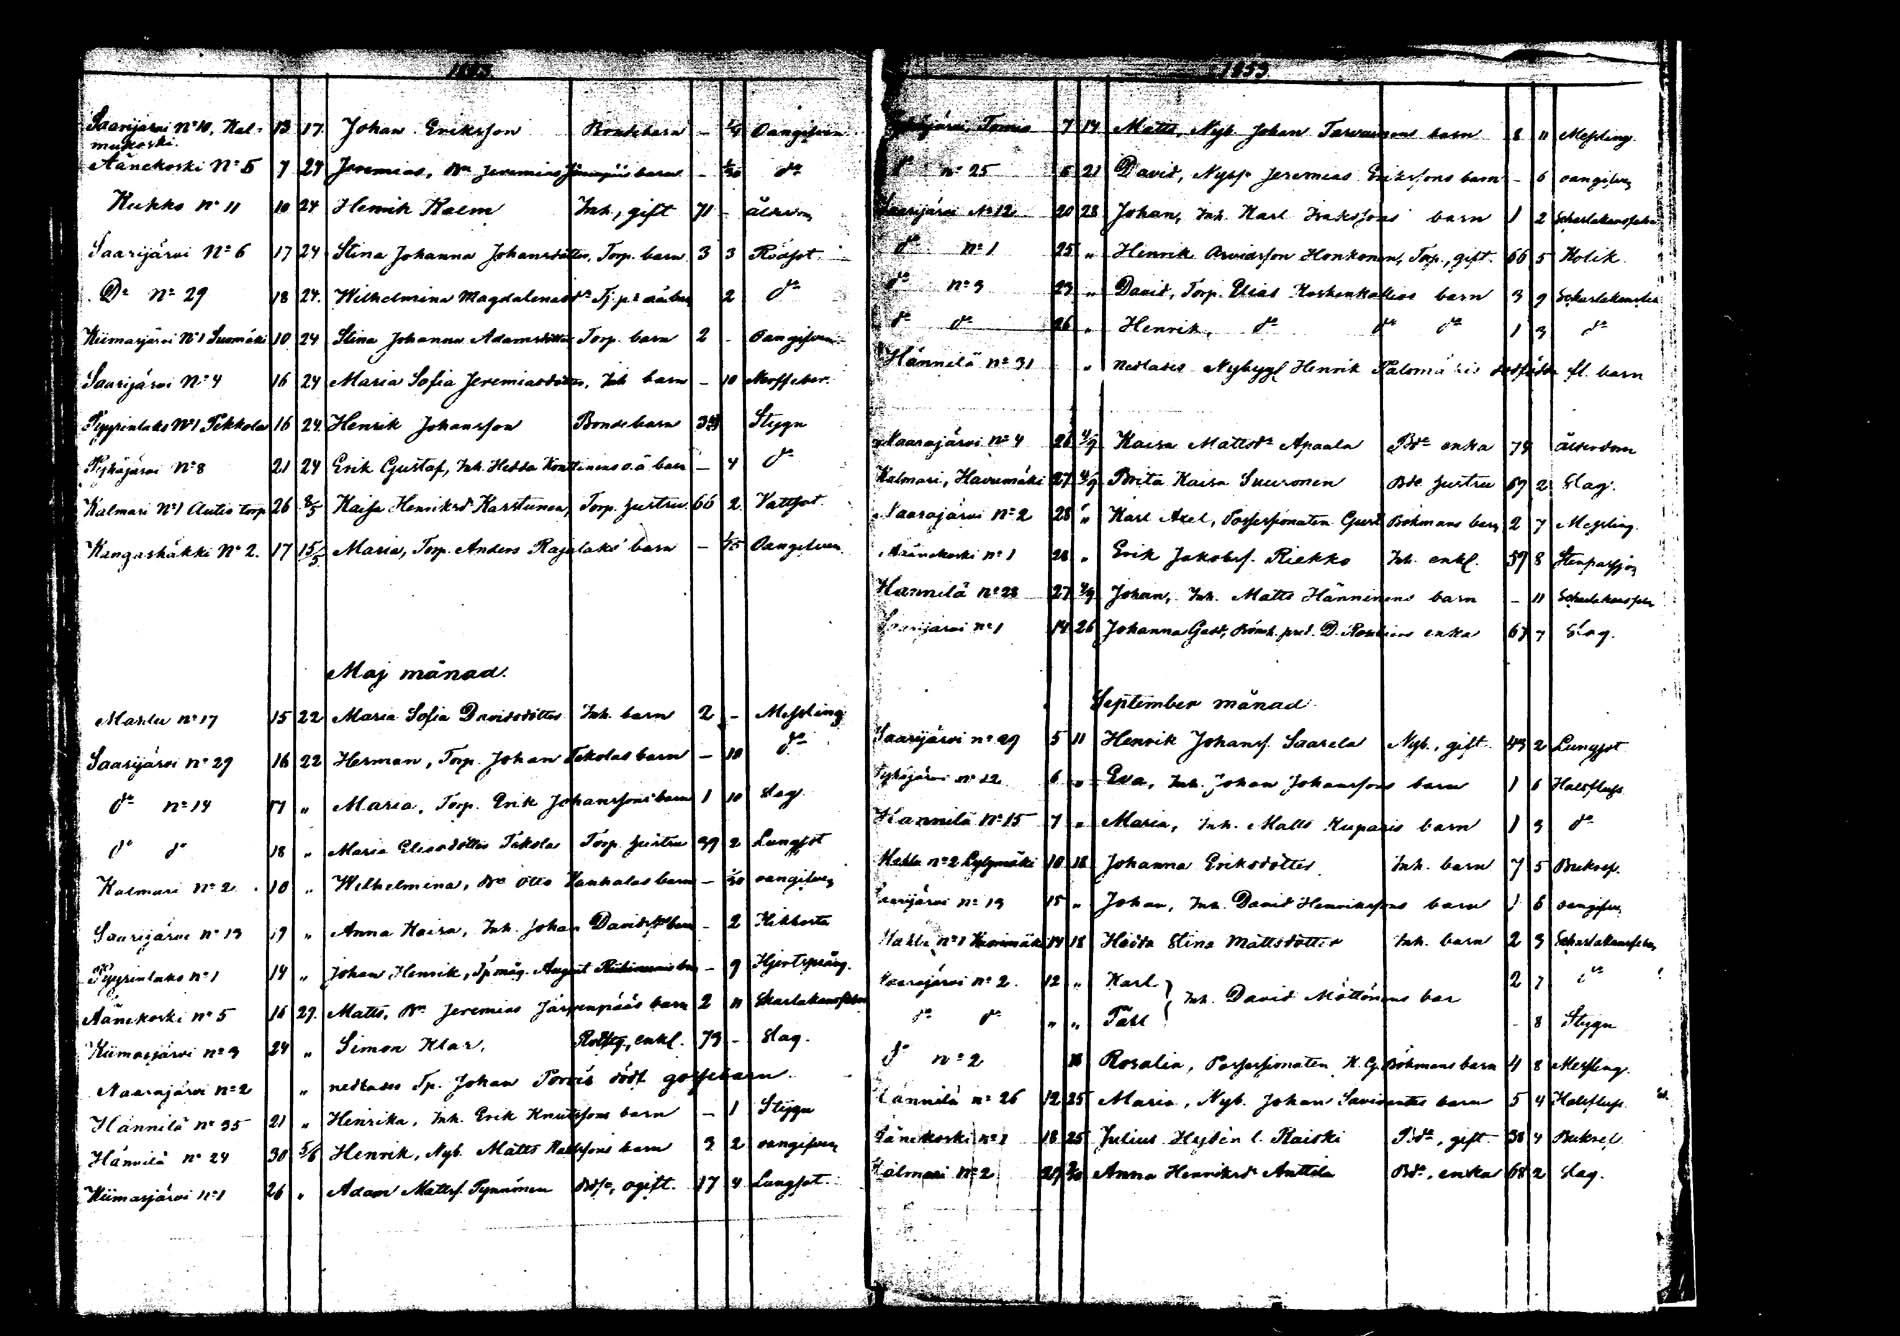 1853.
Saarijärvi No 10, Kal- 13 17. Johan Eriksson Bondebarn - 1/4 Oangifven
mukoski.
Äänekoski No 5 7 24 Jeremias, Bn Jeremias barn - 1/30 do
Kukko No 11 10 24 Henrik Kalm Inh., gift 71 - ålderdom
Saarijärvi No 6 17 24 Stina Johanna Johansdotter, Torp. barn 3 3 Rödsot
Do No 29 18 24. Wilhelmina Magdalenasdr 2 do
Kiimasjärvi No 1 Suomäki 10 24 Stina Johanna Adamsdotter Torp. barn 2 - Oangifven
Saarijärvi No 4 16 24 Maria Sofia Jeremiasdotter, Inh barn - 10 Nerffeber.
Pyyrinlaks No 1 Pekkola 16 24. Henrik Johansson Bondebarn Stygn
Pyhäjärvi No 8 21 24 Erik Gustaf, Inh. Hedda Konttinens o.ä barn - 4 do
Kalmari No 1 Autio torp 26 8/5 Kaisa Henriksd Karstunen, Torp. hustru 66 2 Vattsot
Kangashäkki No 2. 17 15/5 Maria, Torp. Anders barn - Oangifven
Maj månad.
Mahlu no 17 15 22 Maria Sofia Davidsdotter Inh. barn 2 - Messling
Saarijärvi no 29 16 22 Herman, Torp. Johan Tekolas barn - 10 do
do no 14 17 " Maria, Torp. Erik Johanssons barn 1 10 slag
do do 18 " Maria Eliasdotter Tekola Torp. hustru 39 2 Lungsot
Kalmari no 2 10 " Wilhelmina, Bn Otto Vanhalas barn - 1/30 oangifven
Saarijärvi no 13 19 " Anna Kaisa, Inh. Johan barn - 2 Kikhosta
Pyyrinlaks no 1 14 " Johan Henrik, August - 9 Hjertspräng.
Äänekoski no 5 16 29. Matts, Bn Jeremias Järvenpääs barn 2 11 Skarlakansfeber
Kiimasjärvi no 3 24 " Simon Klar, enkl. 73 - slag.
Naarajärvi no 2 " nedsattes Tp. Johan dödf. gossebarn
Hännilä no 35 21 " Henrika, Inh. Erik Knutssons barn - 1 Stygn
Hännilä no 24 30 5/6 Henrik, Nyb. Matts barn 3 2 oangifven
Kiimasjärvi no 1 26 " Adam Mattsf. Tynnönen ogift. 17 4 Lungsot.
1853
7 14 Matts, Nyb. Johan Tarvainens barn 8 11 Messling
do no 25 6 21 David, Nyb. Jeremias Erikssons barn - 6 oangifven
Saarijärvi No 12 20 28 Johan, Inh. Karl Isakssons barn 1 2 Scharlakansfeber
do no 1 25 " Henrik Arvidsson Honkonen, Torp., gift. 66 5 Kolik
do no 3 23 " David, Torp. Elias Koskenkallios barn 3 9 Scharlakansfeber
do do 26 " Henrik, do do do 1 3 do
Hännilä no 31 " nedsattes Nybygg. Henrik Palomäkis dödfödda fl. barn
Naarajärvi no 4 26 4/9 Kaisa Mattsdr Apaala enka 74 ålderdom
Kalmari, Havumäki 27 4/9 Brita Kaisa Suuronen Bde hustru 69 2 slag.
Naarajärvi no 2 28 " Karl Axel, Possessionaten Gust. Böhmans barn 2 7 Messling.
Äänekoski no 1 28 " Erik Jakobsf. Riekko Inh. enkl. 59 8 Stenpassion
Hännilä no 28 27 4/9 Johan, Inh. Matts Hänninens barn - 11 Scharlakansfeber
Saarijärvi no 1 14 26 Johanna enka 67 7 slag.
September månad
Saarijärvi no 29 5 11 Henrik Johansf. Saarela Nyb., gift 43 2 Lungsot
Pyhäjärvi no 12 6 " Eva, Inh. Johan Johanssons barn 1 6 Halsfluss
Hännilä No 15 7 " Maria, Inh. Matts Kuparis barn 1 3 do
Mahlu no 2 10 18 Johanna Eriksdotter Inh. barn 7 5 Bukref.
Saarijärvi no 13 15 " Johan, Inh. David Henrikssons barn 1 6 oangifven
Mahlu no 1 14 18 Hedda Stina Mattsdotter Inh. barn 2 3 Scharlakansfeber
Saarijärvi no 2. 12 " Karl } Inh. David Möttönens bar 2 7 do
do do " " Fäll - 8 Stygn
do no 2 18 Rosalia, Possessionaten K. G. Böhmans barn 4 8 Messling.
Hännilä no 26 12 25 Maria, Nyb. Johan barn 5 4 Halsfluss.
Äänekoski no 1 18 25 Julius Hedén l. Raiski gift 38 4 Bukref.
Kalmari no 2 29 Anna Henriksd Anttila Bde, enka 68 2 slag.